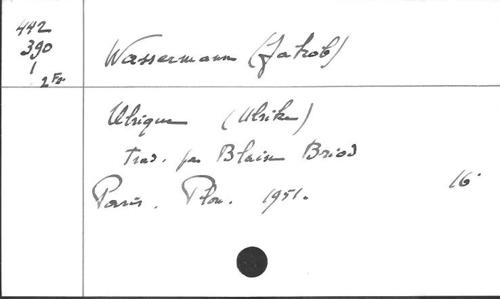 442
390
1
2 Fr.
Wassermann (Jakob)
Ulrique (Ulrike)
Trad. par Blaise Briod
Paris. Plon. 1951. 16°